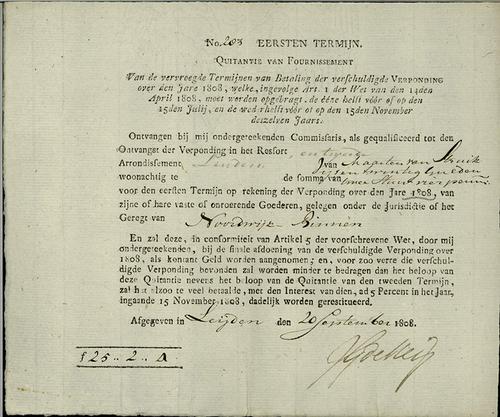 No. 203 EERSTEN TERMIJN.
QUITANTIE VAN FOURNISSEMENT
Van de vervroegde Termijnen van Betaling der verschuldigde VERPONDING
over den Jare 1808, welke, ingevolge Art. 1 der Wet van den 14den
April 1808, moet worden opgebragt, de ééne helft vóór of op den
15den Julij, en de wederhelft vóór of op den 15den November
deszelven Jaars.
Ontvangen bij mij ondergeteekenden Commissaris, als gequalificeerd tot den
Ontvangst der Verponding in het Ressort,
Arrondissement Leyden van Maarten van
woonachtig te de somma van vijfentwintig guldens
en twee stuivers
voor den eersten Termijn op rekening der Verponding over den Jare 1808, van
zijne of hare vaste of onroerende Goederen, gelegen onder de Jurisdictie of het
Geregt van Noordwijk Binnen
En zal deze, in conformiteit van Artikel 5 der voorschrevene Wet, door mij
ondergeteekenden, bij de finale afdoening van de verschuldigde Verponding over
1808, als kontant Geld worden aangenomen; en, voor zoo verre die verschul-
digde Verponding bevonden zal worden minder te bedragen dan het beloop van
deze Quitantie nevens het beloop van de Quitantie van den tweeden Termijn,
zal het alzoo te veel betaalde, met den Interest van dien, ad 5 Percent in het Jaar,
ingaande 15 November 1808, dadelijk worden gerestitueerd.
Afgegeven in Leijden den 20 September 1808.
ƒ 25 .. 2 .. Δ